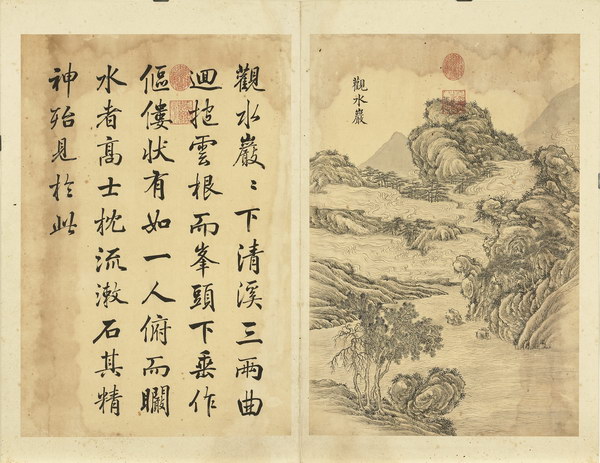 觀水巖
觀水巖〻下清溪三兩曲
迴抱雲根而峯頭下垂作
傴僂狀有如一人俯而矙
水者高士枕流漱石其精
神殆見於此